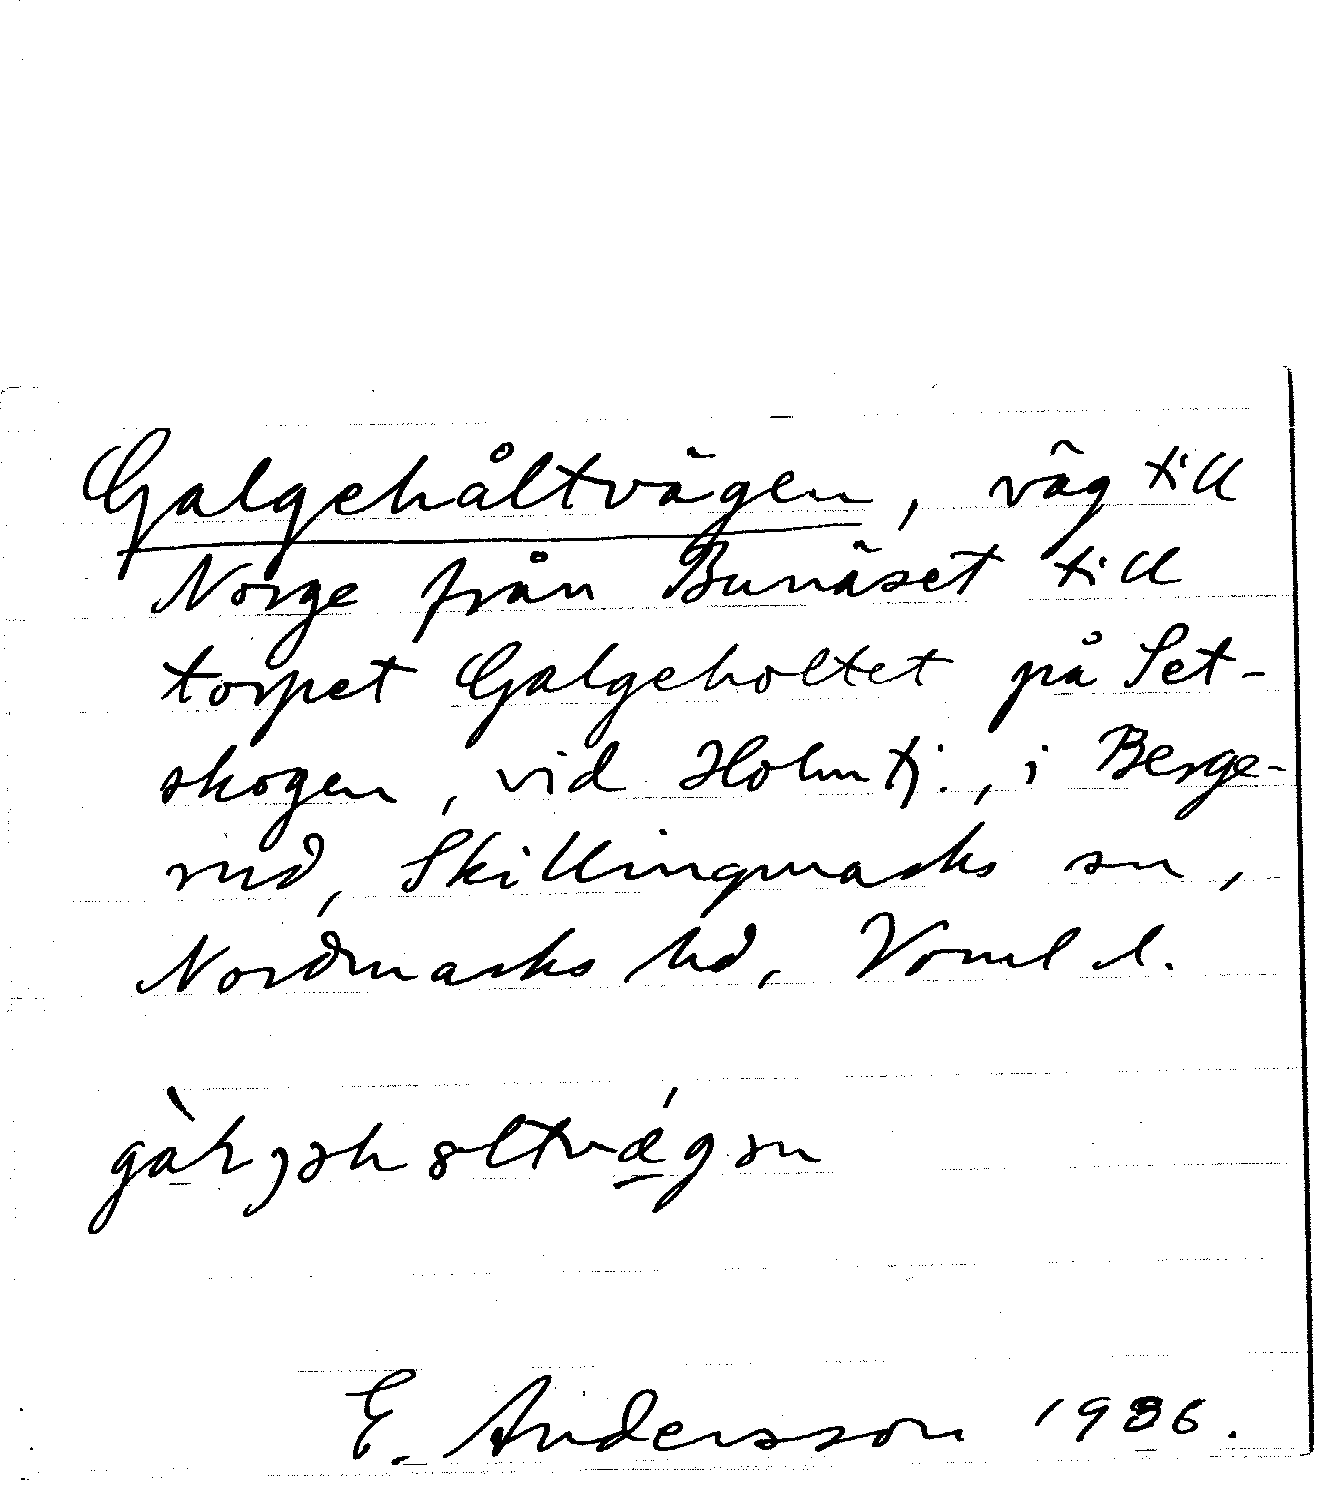 Galgehåltvägen, väg till
Norge från Bunäset till
torpet Galgeholtet på Set-
skogen, vid Holmtj., i Berge-
rud, Skillingmarks sn,
Nordmarks hd, Verml l.
E. Andersson 1936.